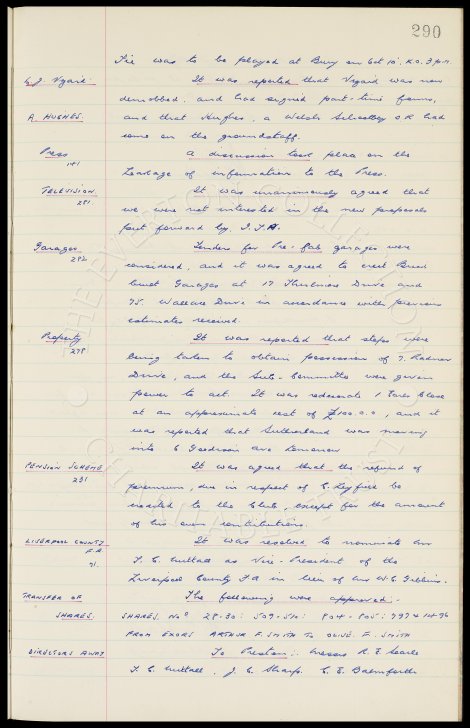 290
Tie was to be played at Bury on Oct 10. K.O. 3 p.m.
G.J. Vizard. It was reported that Vizard was now
demobbed, and had signed part-time forms,
A HUGHES. and that Hughes, a Welsh Schoolboy I.R had
come on the groundstaff.
Press A discussion took place on the
141 Leakage of information to the Press.
TELEVISION. It was unanimously agreed that
281 we were not interested in the new proposals
put forward by I.T.A.
Garages Tenders for Pre-fab garages were
282 considered, and it was agreed to erect Brick
built Garages at 17 Thirlmere Drive and
75. Wallace Drive in accordance with previous
estimates received.
Property It was reported that steps were
278 being taken to obtain possession of 7. Radnor
Drive, and the Sub-Committee were given
power to act. It was redecorate 1 Close
at an approximate cost of £100.0.0, and it
was reported that Sutherland was moving
into 6 Goodison Ave tomorrow
PENSION SCHEME It was agreed that the refund of
231 premium, due in respect of C. Leyfield be
credited to the Club, except for the amount
of his own contributions.
LIVERPOOL COUNTY It was resolved to nominate Mr
F.A
91. T. C. Nuttall as Vice-President of the
Liverpool County F.A in lieu of Mr W.C. Gibbins.
TRANSFER OF The following were approved.
SHARES. SHARES. Nos 28-30: 509-510: 804-805: 797 & 1496
FROM EXORS ARTHUR F. SMITH TO OLIVE. F. SMITH
DIRECTORS AWAY To Preston:- Messrs R. E. Searle
T. C. Nuttall, J. C. Sharp. C. E. Balmforth
THE EVERTON COLLECTION
CHARITABLE TRUST